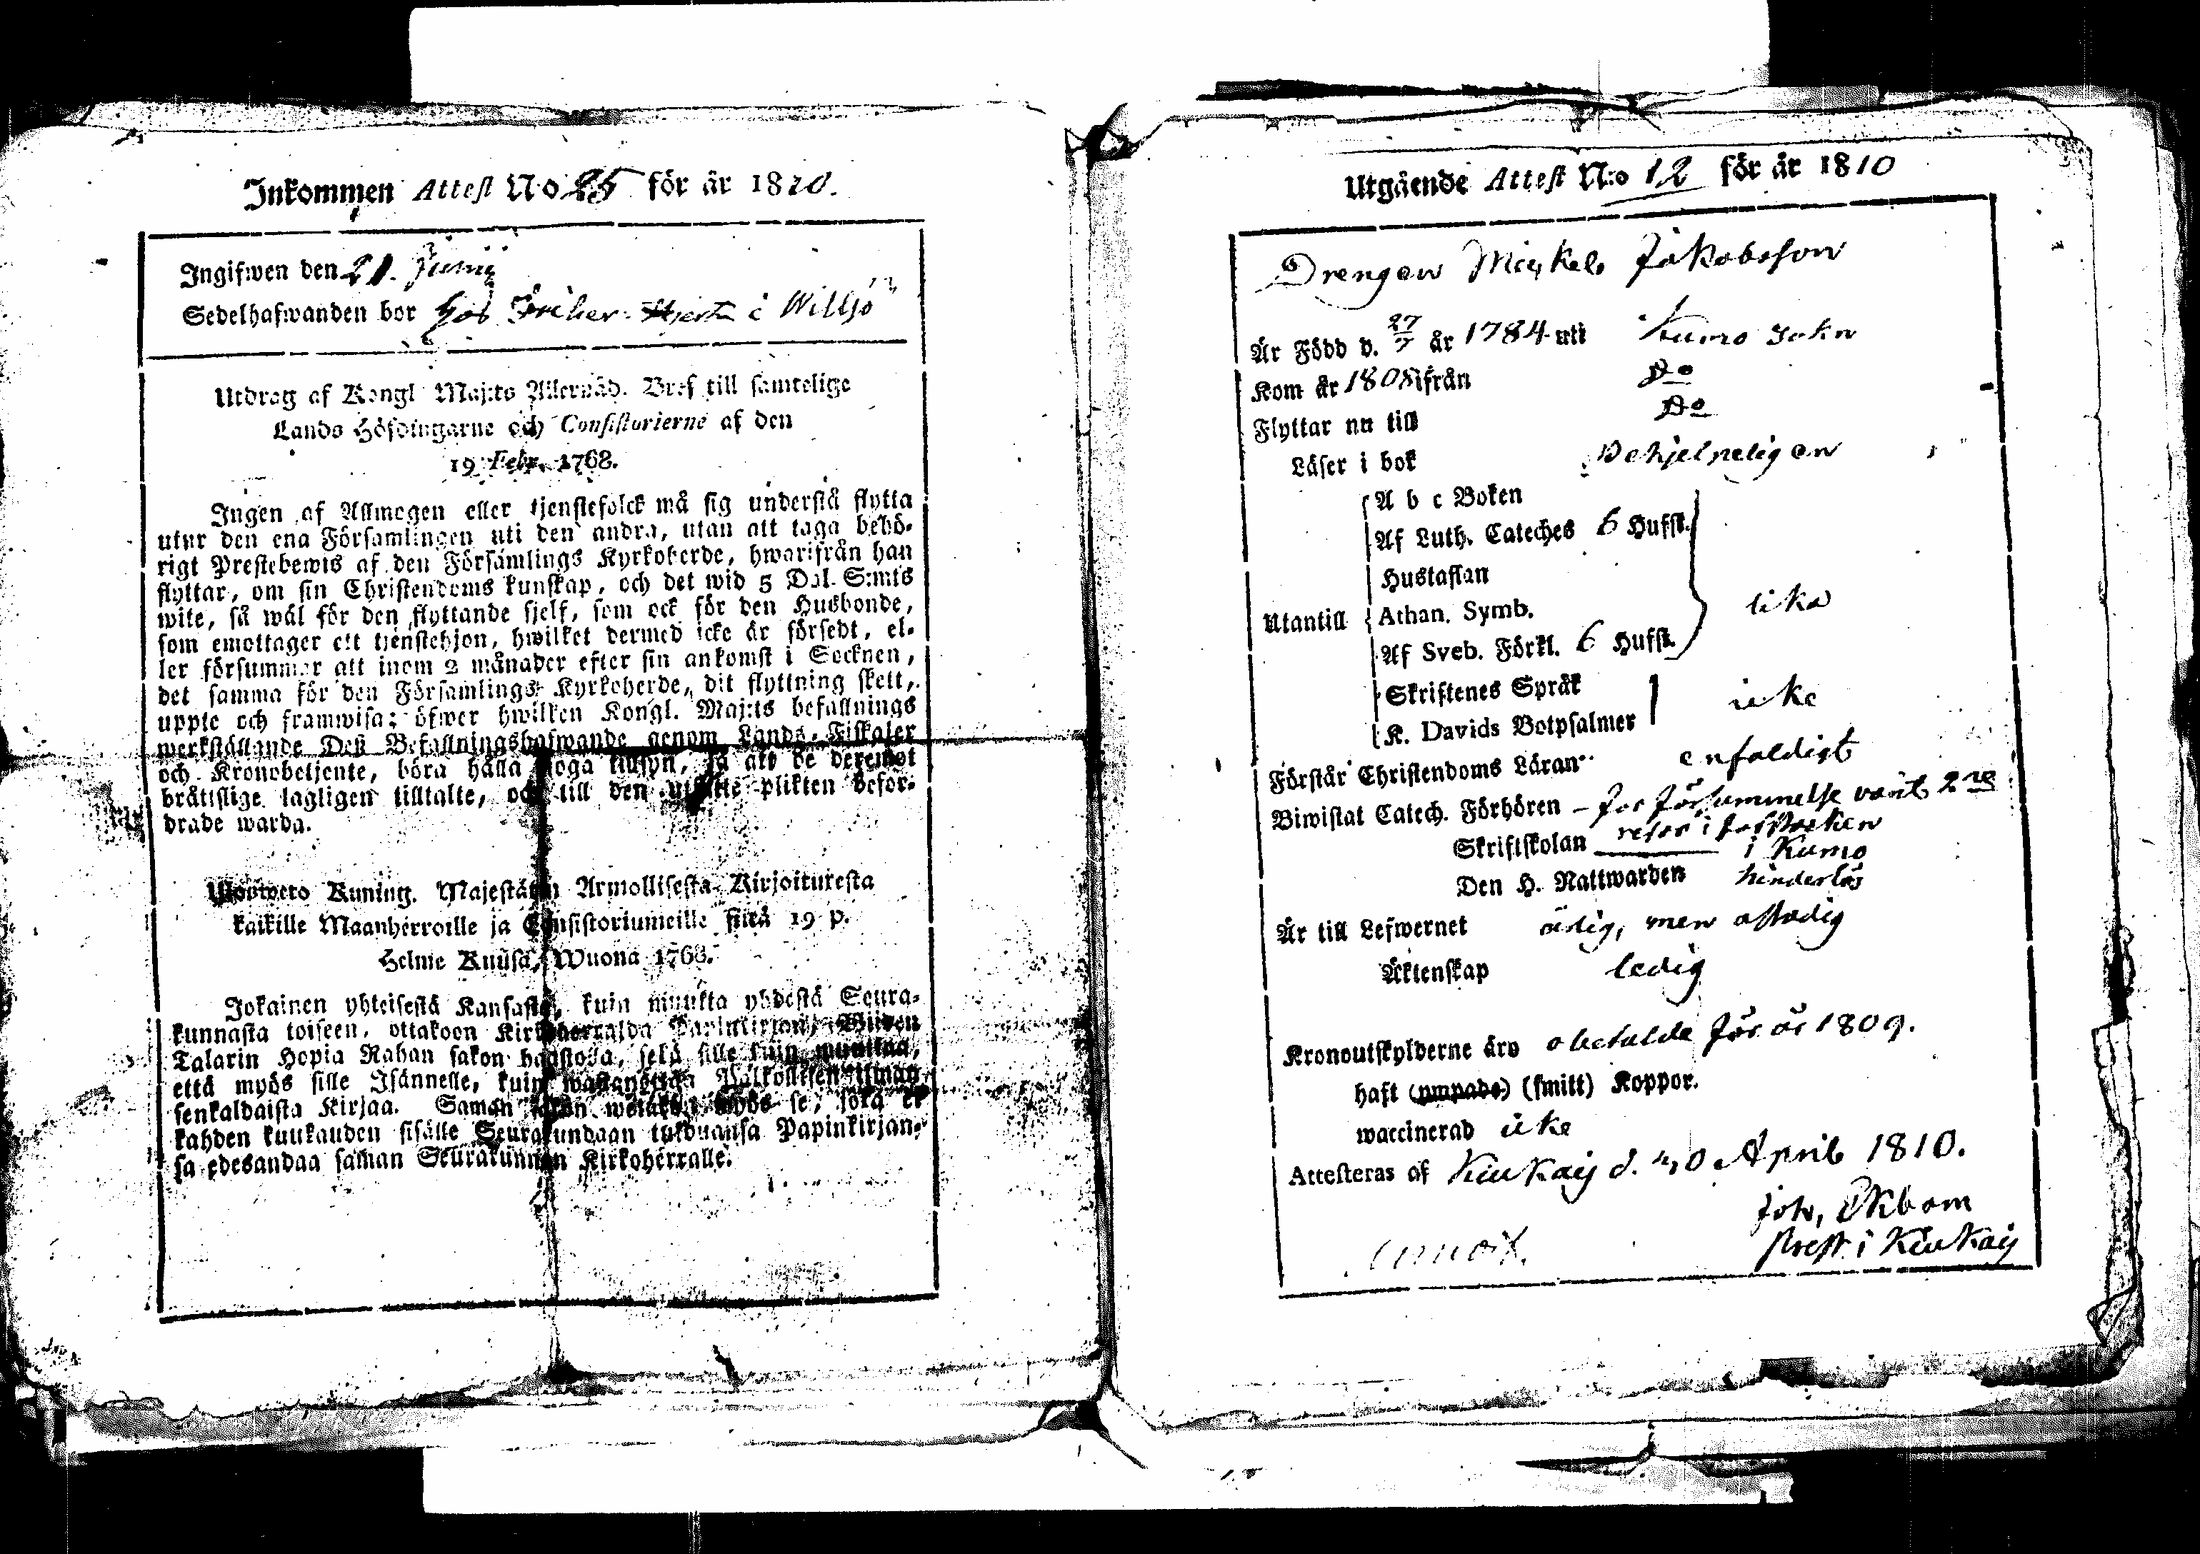 Inkommen Attest No 25 för år 1810.
Ingifwen den 21. Junii
Sedelhafwanden bor hos i Willjo
Utdrag af Kongl Maj:ts Allernåd. Bref till samtelige
Lands Höfdingarne och Consistorierne af den
19 Febr. 1768.
Ingen af Allmogen eller tjenstefolck må sig understå flytta
utur den ena Församlingen uti den andra, utan att taga behö-
rigt Prestebewis af den Församlings Kyrkoherde, hwarifrån han
flyttar, om sin Christendoms kunskap, och det wid 5 Dal. S:mts
wite, så wäl för den flyttande sjelf, som ock för den Husbonde,
som emottager ett tjenstehjon, hwilket dermed icke är försedt, el-
ler försummar att inom 2 månader efter sin ankomst i Socknen,
det samma för den Församlings Kyrkoherde, dit flyttning skett,
uppte och framwisa; öfwer hwilken Kongl. Maj:ts befallnings
werkställande Deß Befallningshafwande genom Lands-Fiskaler
och Kronobetjente, böra hålla noga tillsyn, så att de deremot
bråttslige lagligen tilltalte, och till den plikten befor-
drade warda.
Kuning. Majestätin Armollisesta Kirjoituxesta
kaikille Maanherroille ja Consistoriumeille siitä 19 p.
Helme Kuusa, Wuona 1768.
Jokainen yhteisestä Kansasta, kuin muukta yhdestä Seura-
kunnasta toiseen, ottakoon Kirkoherralda Papinkirjan, Wiiden
Talarin Hopia Rahan sakon haastolla, sekä sille kuin muuttaa,
että myös sille Isännelle, kuin wastanottaa Palkollisen ilman
senkaldaista Kirjaa. Saman sakon wetäköön myös se, joka ei
kahden kuukauden sisälle Seurakundaan tulduansa Papinkirjan-
sa edesandaa saman Seurakunnan Kirkoherralle.
Utgående Attest N:o 12 för år 1810
Drengen Mickel Jakobsson
Är Född d. 27/7 år 1784 uti Kumo Sokn
Kom år 1808 ifrån Do
Flyttar nu till Do
Läser i bok Behjelpeligen
A b c Boken
Af Luth. Cateches 6 Hufst.
Hustaflan
Utantill Athan. Symb. lika
Af Sveb. Förkl. 6 Hufst.
Skriftenes Språk icke
K. Davids Botpsalmer
Förstår Christendoms Läran enfaldigt
Biwistat Catech. Förhören – för försummelse varit 2ne
Skriftskolan resor i
i Kumo
Den H. Nattwarden hinderlös
Är till Lefwernet ärlig, men ostadig
Äktenskap ledig
Kronoutskylderne äro obetalde för år 1809.
haft (ympade) (smitt) Koppor.
waccinerad icke
Attesteras af Kiukais d. 30 April 1810.
Joh. Ekbom
Prest. i Kiukais